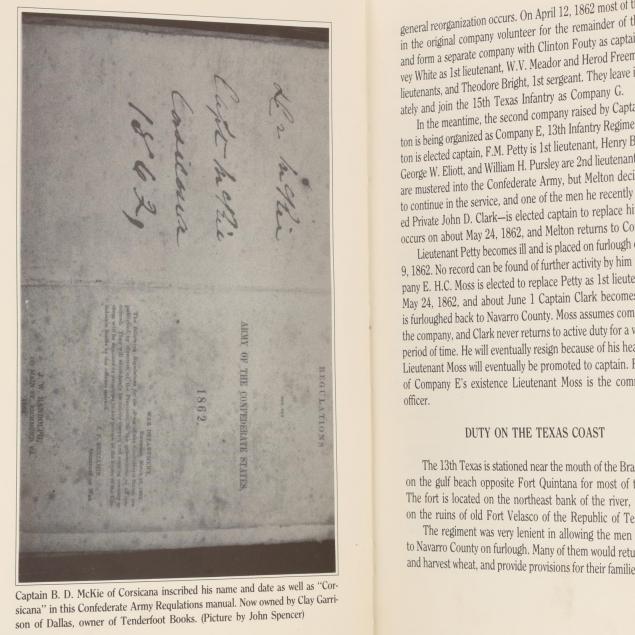 Capt McKie
Corsicana
1863,
REGULATIONS
ARMY OF THE CONFEDERATE STATES,
1862.
WAR DEPARTMENT,
J. W. RANDOLPH,
Captain B. D. McKie of Corsicana inscribed his name and date as well as "Cor-
sicana" in this Confederate Army Requlations manual. Now owned by Clay Garri-
son of Dallas, owner of Tenderfoot Books. (Picture by John Spencer)
general reorganization occurs. On April 12, 1862 most of
in the original company volunteer for the remainder of
and form a separate company with Clinton Fouty as captai
vey White as 1st lieutenant, W.V. Meador and Herod Freem
lieutenants, and Theodore Bright, 1st sergeant. They leave
ately and join the 15th Texas Infantry as Company G.
In the meantime, the second company raised by Capta
ton is being organized as Company E, 13th Infantry Regime
ton is elected captain, F.M. Petty is 1st lieutenant, Henry B
George W. Eliott, and William H. Pursley are 2nd lieutenant
are mustered into the Confederate Army, but Melton deci
to continue in the service, and one of the men he recently
ed Private John D. Clark—is elected captain to replace hi
occurs on about May 24, 1862, and Melton returns to Co
Lieutenant Petty becomes ill and is placed on furlough
9, 1862. No record can be found of further activity by him
pany E. H.C. Moss is elected to replace Petty as 1st lieute
May 24, 1862, and about June 1 Captain Clark becomes
is furloughed back to Navarro County. Moss assumes com
the company, and Clark never returns to active duty for a
period of time. He will eventually resign because of his hea
Lieutenant Moss will eventually be promoted to captain.
of Company E's existence Lieutenant Moss is the com
officer.
DUTY ON THE TEXAS COAST
The 13th Texas is stationed near the mouth of the Bra
on the gulf beach opposite Fort Quintana for most of
The fort is located on the northeast bank of the river,
on the ruins of old Fort Velasco of the Republic of Te
The regiment was very lenient in allowing the men
to Navarro County on furlough. Many of them would retu
and harvest wheat, and provide provisions for their familie